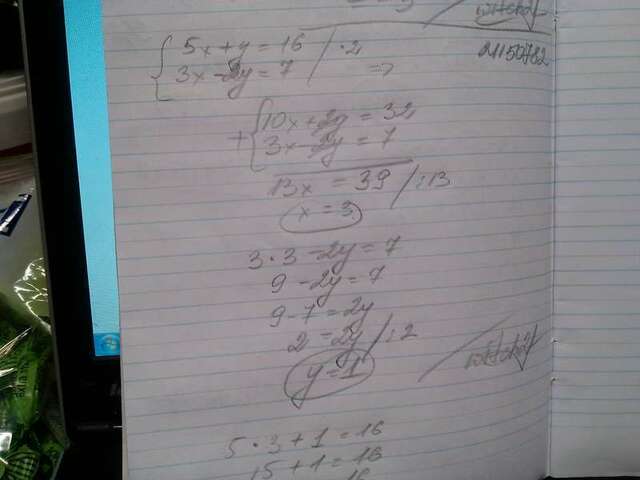 5x+y=16 /·2
3x-2y=7 =>
21150782
+ 10x+2y=32
3x-2y=7
13x=39 /:13
x=3
3·3-2y=7
9-2y=7
9-7=2y
2=2y /:2
y=1
5·3+1=16
15+1=16
16